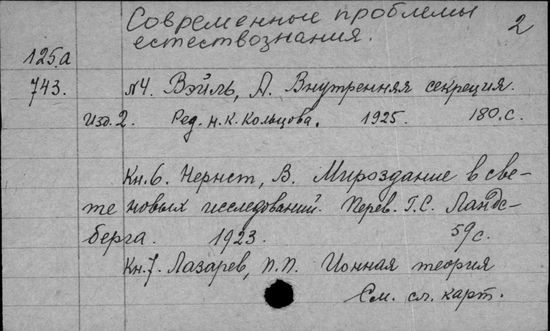 Современные проблемы 2
естествознания.
125.а
743. №4. Вэйль, А. Внутренняя секреция.
Изд. 2. Ред. Н.К. Кольцова. 1925. 180.с.
Кн.6. Нернст, В. Мироздание в све-
те новых исследований. Перев. Г.С. Ландс-
берга. 1923. 59с.
Кн.7. Лазарев, П.П. Ионная теория
См. сл. карт.